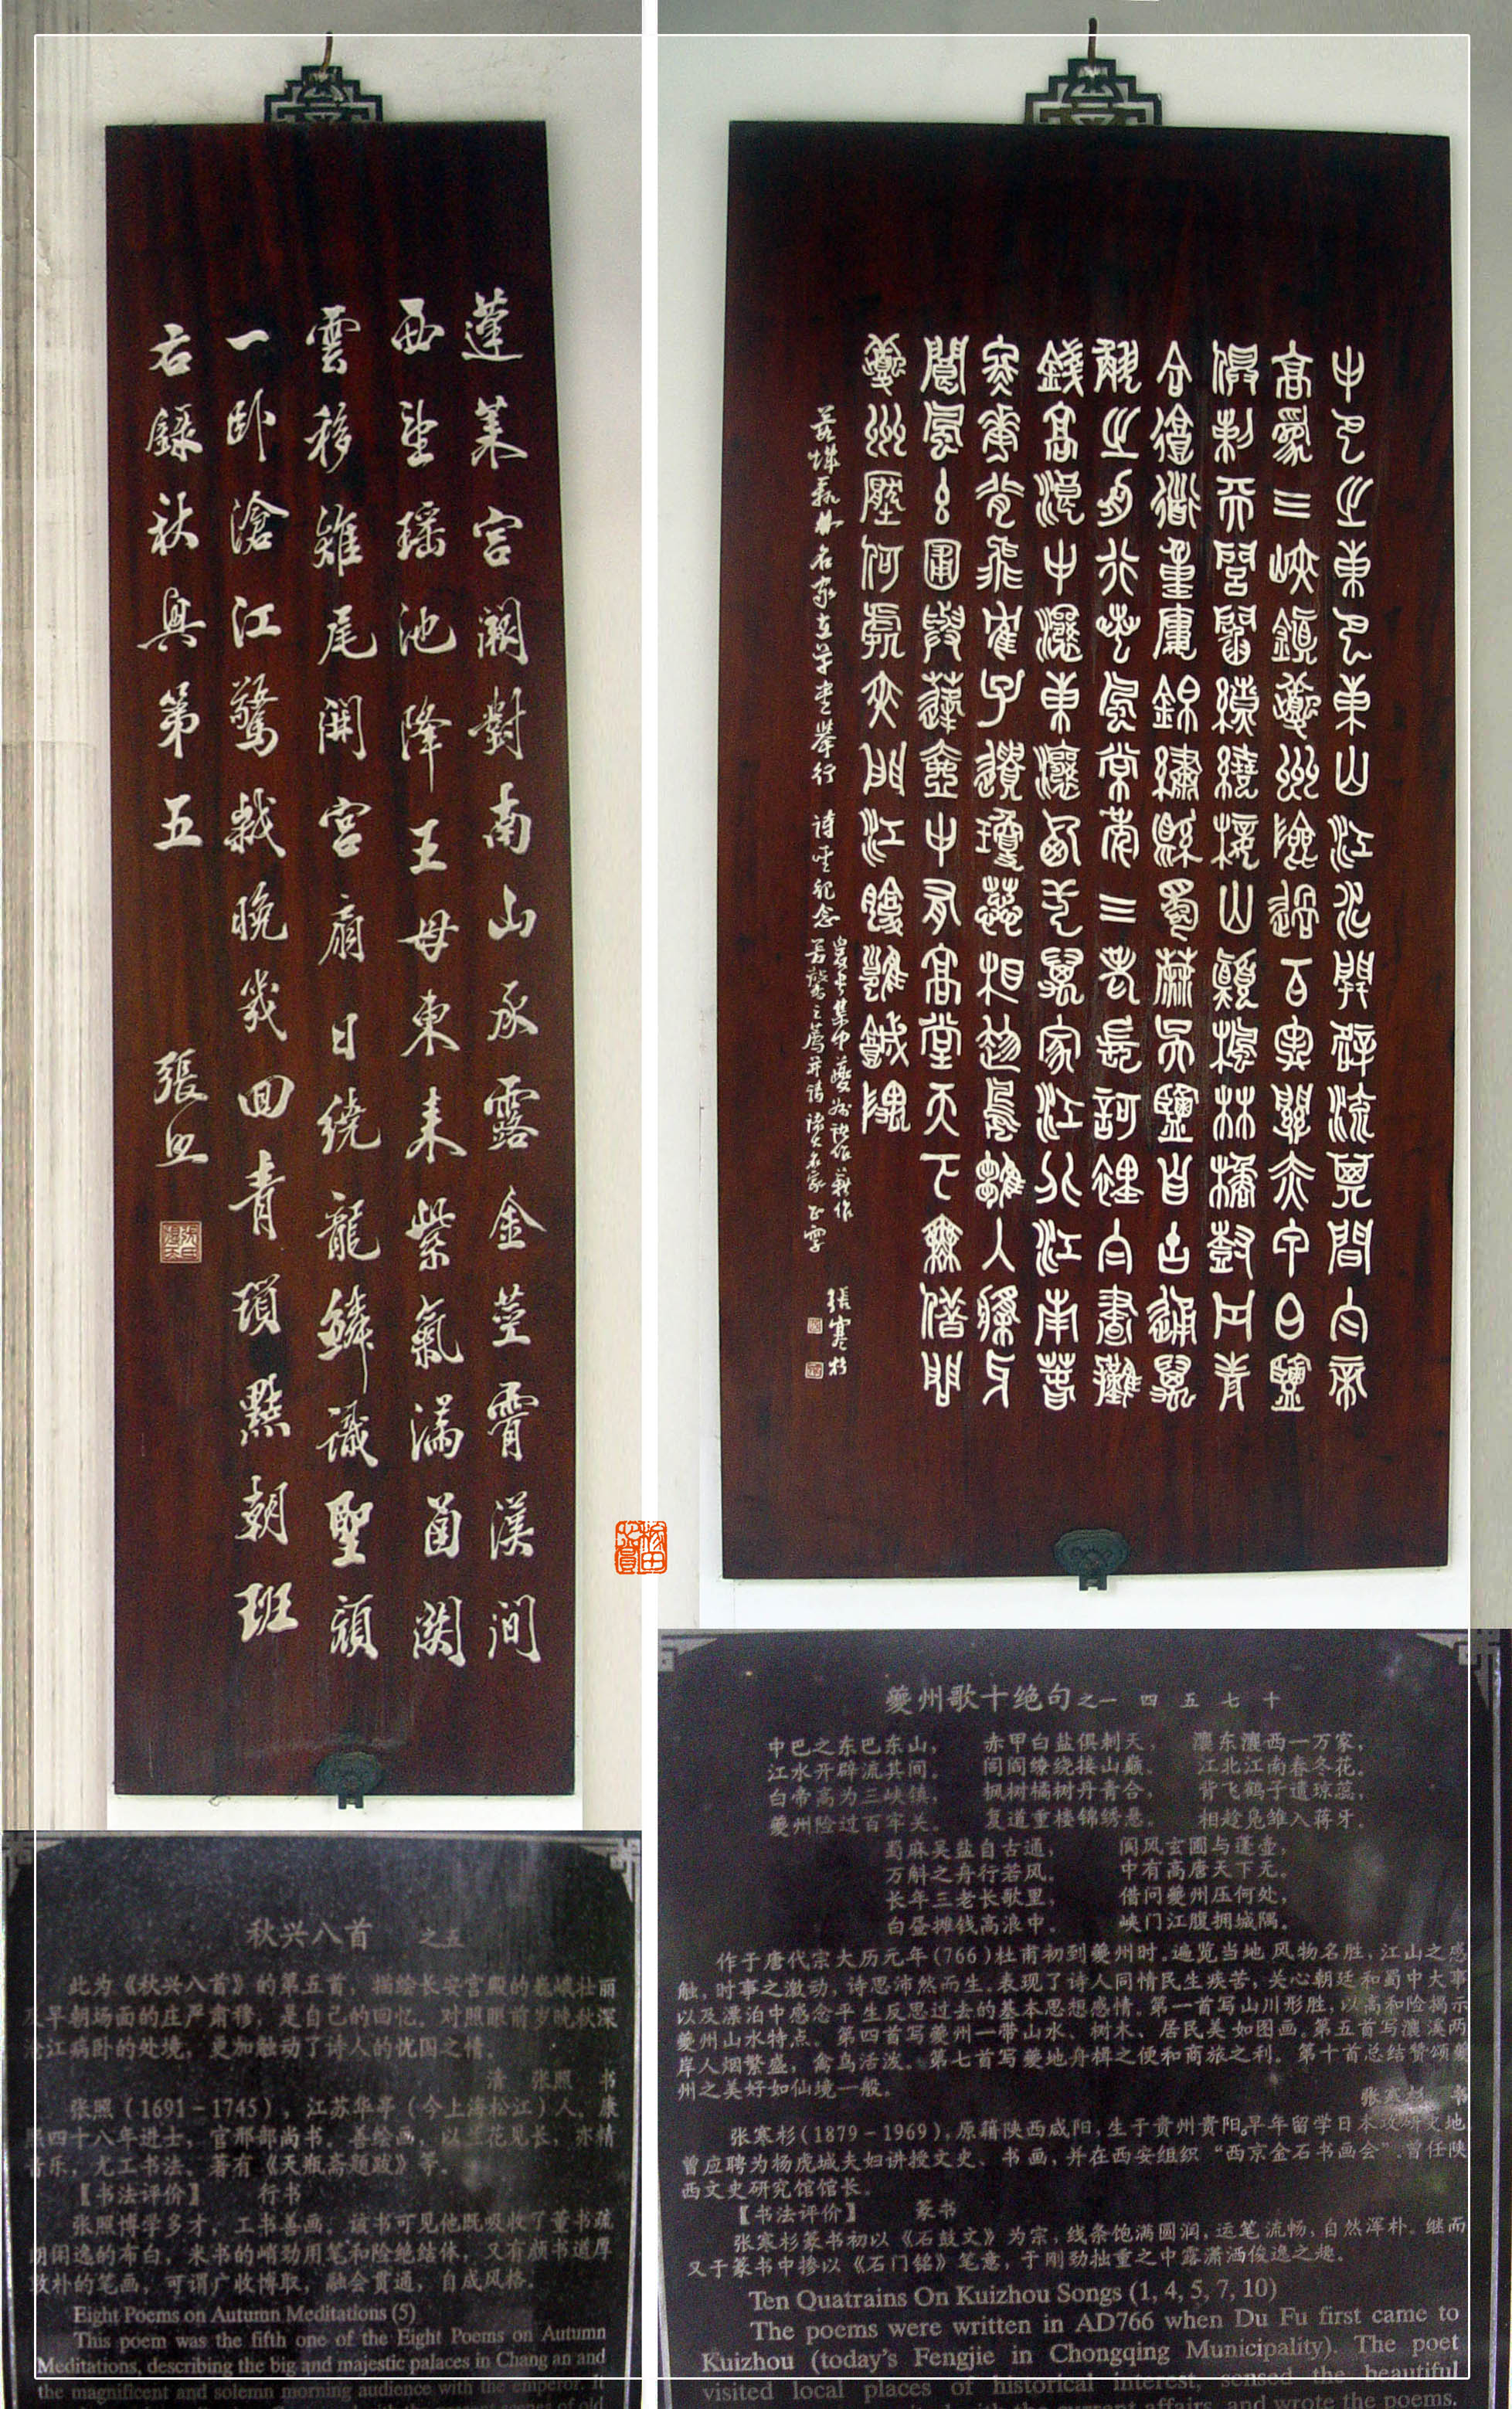 蓬莱宫阙對南山承露金莖霄漢间
西望瑶池降王母東来紫氣满函関
雲移雉尾開宫扇日繞龍鳞識聖顔
一卧滄江驚歲晚幾回青瑣點朝班
右録秋興第五 張照
秋兴八首 之五
此为《秋兴八首》的第五首，描绘长安宫殿的巍峨壮丽
及早朝场面的庄严肃穆，是自己的回忆。对照眼前岁晚秋深
沧江病卧的处境，更加触动了诗人的忧国之情。
清 张照 书
张照（1691-1745），江苏华亭（今上海松江）人，康
熙四十八年进士，官刑部尚书。善绘画，以兰花见长，亦精
音乐，尤工书法。著有《天瓶斋题跋》等。
【书法评价】 行书
张照博学多才，工书善画。该书可见他既吸收了董书疏
朗闲逸的布白，米书的峭劲用笔和险绝结体，又有颜书道厚
敦朴的笔画，可谓广收博取，融会贯通，自成风格。
Eight Poems on Autumn Meditations (5)
This poem was the fifth one of the Eight Poems on Autumn
Meditations, describing the big and majestic palaces in Chang an and
the magnificent and solemn morning audience with the emperor. It
中巴之東巴東山江水開辟流其間白帝
高爲三峽鎮夔州險過百牢關赤甲白鹽
俱刺天閭閻繚繞接山顛楓林橘樹丹青
合復道重樓錦繡縣蜀麻吳鹽自古通萬
斛之舟行若風長年三老長歌裡白晝攤
錢高浪中瀼東瀼西一萬家江北江南春
冬花背飛鶴子遺瓊蕊相趁鳧雛人蔣牙
閬風玄圃與蓬壺中有高堂天下無借問
夔州壓何處夾門江腹雝城隅
張寒杉
夔州歌十绝句之一 四 五 七 十
中巴之东巴东山， 赤甲白盐俱刺天， 瀼东瀼西一万家，
江水开辟流其间。 闾阎缭绕接山巅。 江北江南春冬花。
白帝高为三峡镇， 枫树橘树丹青合， 背飞鹤子遗琼蕊，
夔州险过百牢关。 复道重楼锦绣悬。 相趁凫雏入蒋牙。
蜀麻吴盐自古通， 阆风玄圃与蓬壶，
万斛之舟行若风。 中有高唐天下无。
长年三老长歌里， 借问夔州压何处，
白昼摊钱高浪中。 峡门江腹拥城隅。
作于唐代宗大历元年(766)杜甫初到夔州时。遍览当地风物名胜，江山之感
触，时事之激动，诗思沛然而生。表现了诗人同情民生疾苦，关心朝廷和蜀中大事
以及漂泊中感念平生反思过去的基本思想感情。第一首写山川形胜，以高和险揭示
夔州山水特点。第四首写夔州一带山水、树木、居民美如图画。第五首写瀼溪两
岸人烟繁盛，禽鸟活泼。第七首写夔地舟楫之便和商旅之利。第十首总结赞颂夔
州之美好如仙境一般。
张寒杉 书
张寒杉(1879-1969)，原籍陕西咸阳，生于贵州贵阳。早年留学日本攻研史地，
曾应聘为杨虎城夫妇讲授文史、书画，并在西安组织“西京金石书画会”。曾任陕
西文史研究馆馆长。
【书法评价】 篆书
张寒杉篆书初以《石鼓文》为宗，线条饱满圆润，运笔流畅，自然浑朴。继而
又于篆书中掺以《石门铭》笔意，于刚劲拙重之中露潇洒俊逸之趣。
Ten Quatrains On Kuizhou Songs (1, 4, 5, 7, 10)
The poems were written in AD766 when Du Fu first came to
Kuizhou (today's Fengjie in Chongqing Municipality). The poet
visited local places of historical interest, sensed the beautiful
with the current affairs, and wrote the poems.